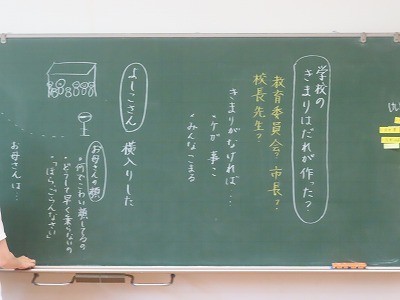 学校の
きまりはだれが作った?
教育委員会?市長?
校長先生?
きまりがなければ…
・ケガ 事こ
・みんなこまる
よしこさん
横入りした
お母さんの顔
・どうして早く乗らないの
・「ほら、ごらんなさい」
お母さんは…